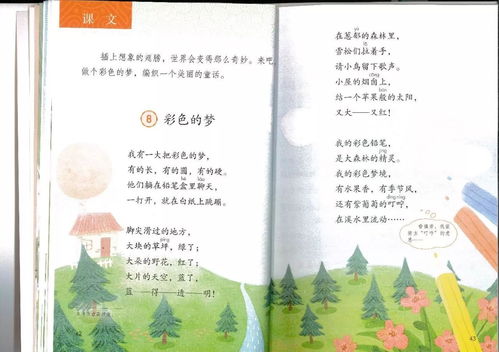 课文
插上想象的翅膀，世界会变得那么奇妙。来吧，
做个彩色的梦，编织一个美丽的童话。
8 彩色的梦
我有一大把彩色的梦，
有的长，有的圆，有的硬。
hé liáo
他们躺在铅笔盒里聊天，
一打开，就在白纸上跳蹦。
脚尖滑过的地方，
píng
大块的草坪，绿了；
大朵的野花，红了；
大片的天空，蓝了，
蓝——得——透——明！
42
yù
在葱郁的森林里，
雪松们拉着手，
请小鸟留下歌声。
cōng
小屋的烟囱上，
结一个苹果般的太阳，
又大——又红！
我的彩色铅笔，
jīng
是大森林的精灵。
我的彩色梦境，
有水果香，有季节风，
dīng níng
还有紫葡萄的叮咛，
在溪水里流动……
43